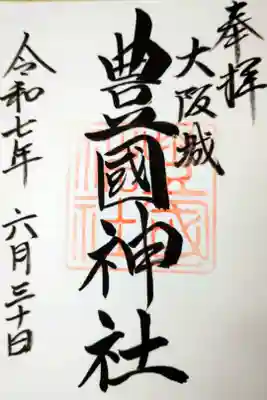 奉拝
大阪城
豊國神社
令和七年 六月三十日